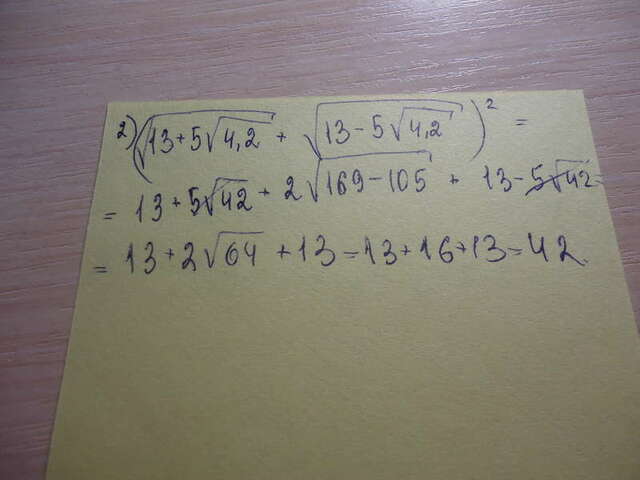 2) (√(13+5√4,2) + √(13-5√4,2))² =
= 13+5√42 + 2√(169-105) + 13-5√42=
= 13+2√64 + 13=13+16+13=42.